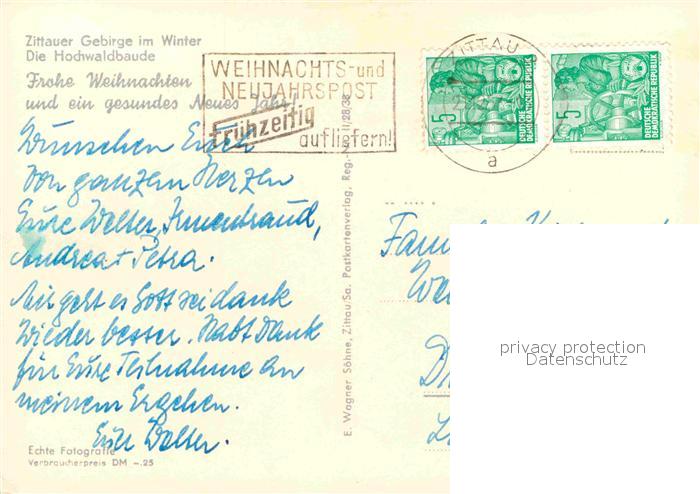 Zittauer Gebirge im Winter
Die Hochwaldbaude
Frohe Weihnachten
und ein gesundes Neues Jahr!
Wünschen Euch
Von ganzem Herzen
Eure Walter, Irmentraud,
Andrea + Petra.
Mir geht es Gott sei dank
wieder besser. Habt Dank
für Eure Teilnahme an
meinem Ergehen.
Euer Walter.
Echte Fotografie
Verbraucherpreis DM -.25
E. Wagner Söhne, Zittau/Sa. Postkartenverlag, Reg.-
II/28/38
WEIHNACHTS- und
NEUJAHRSPOST
frühzeitig
aufliefern!
ZITTAU
a
5
DEUTSCHE
DEMOKRATISCHE REPUBLIK
5
DEUTSCHE
DEMOKRATISCHE REPUBLIK
privacy protection
Datenschutz